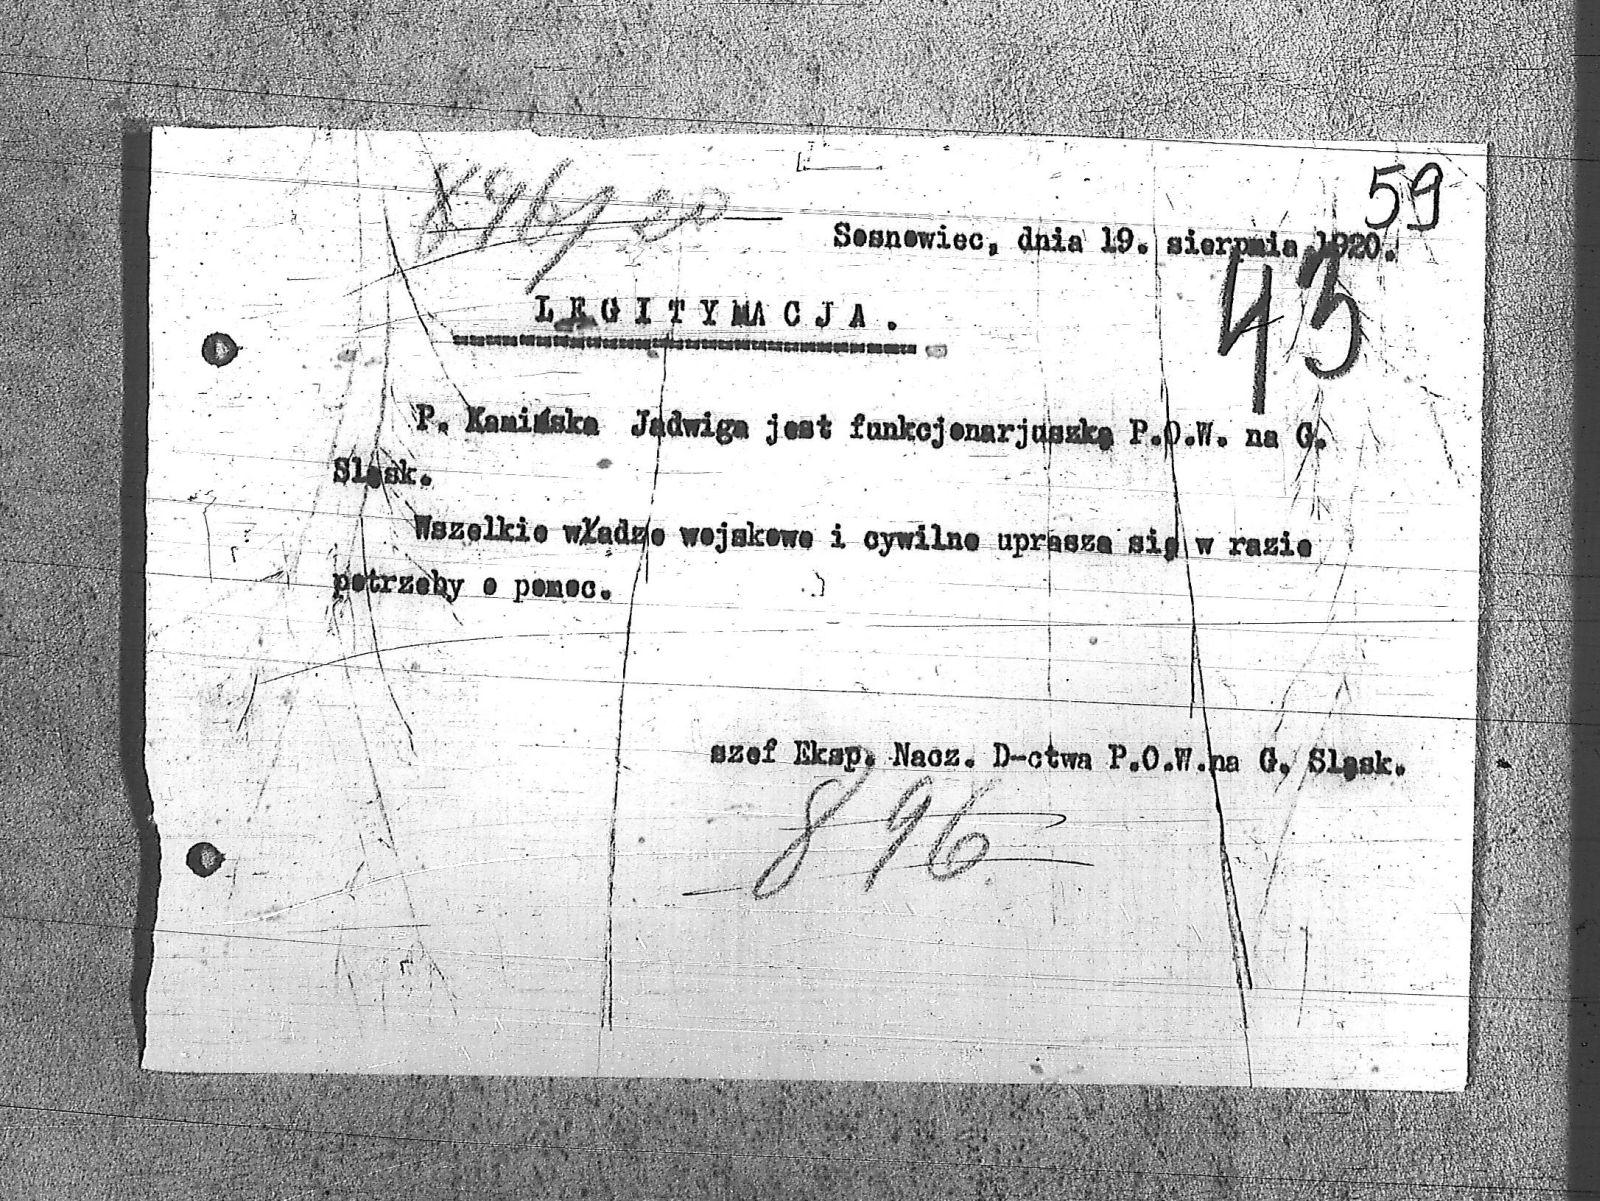 59
896/20
Sosnowiec, dnia 19. sierpnia 1920.
43
LEGITYMACJA.
P. Kamińska Jadwiga jest funkcjonarjuszką P.O.W. na G.
Sląsk.
Wszelkie władze wojskowe i cywilne uprasza się w razie
potrzeby o pomoc.
szef Eksp. Nacz. D-ctwa P.O.W.na G. Sląsk.
896